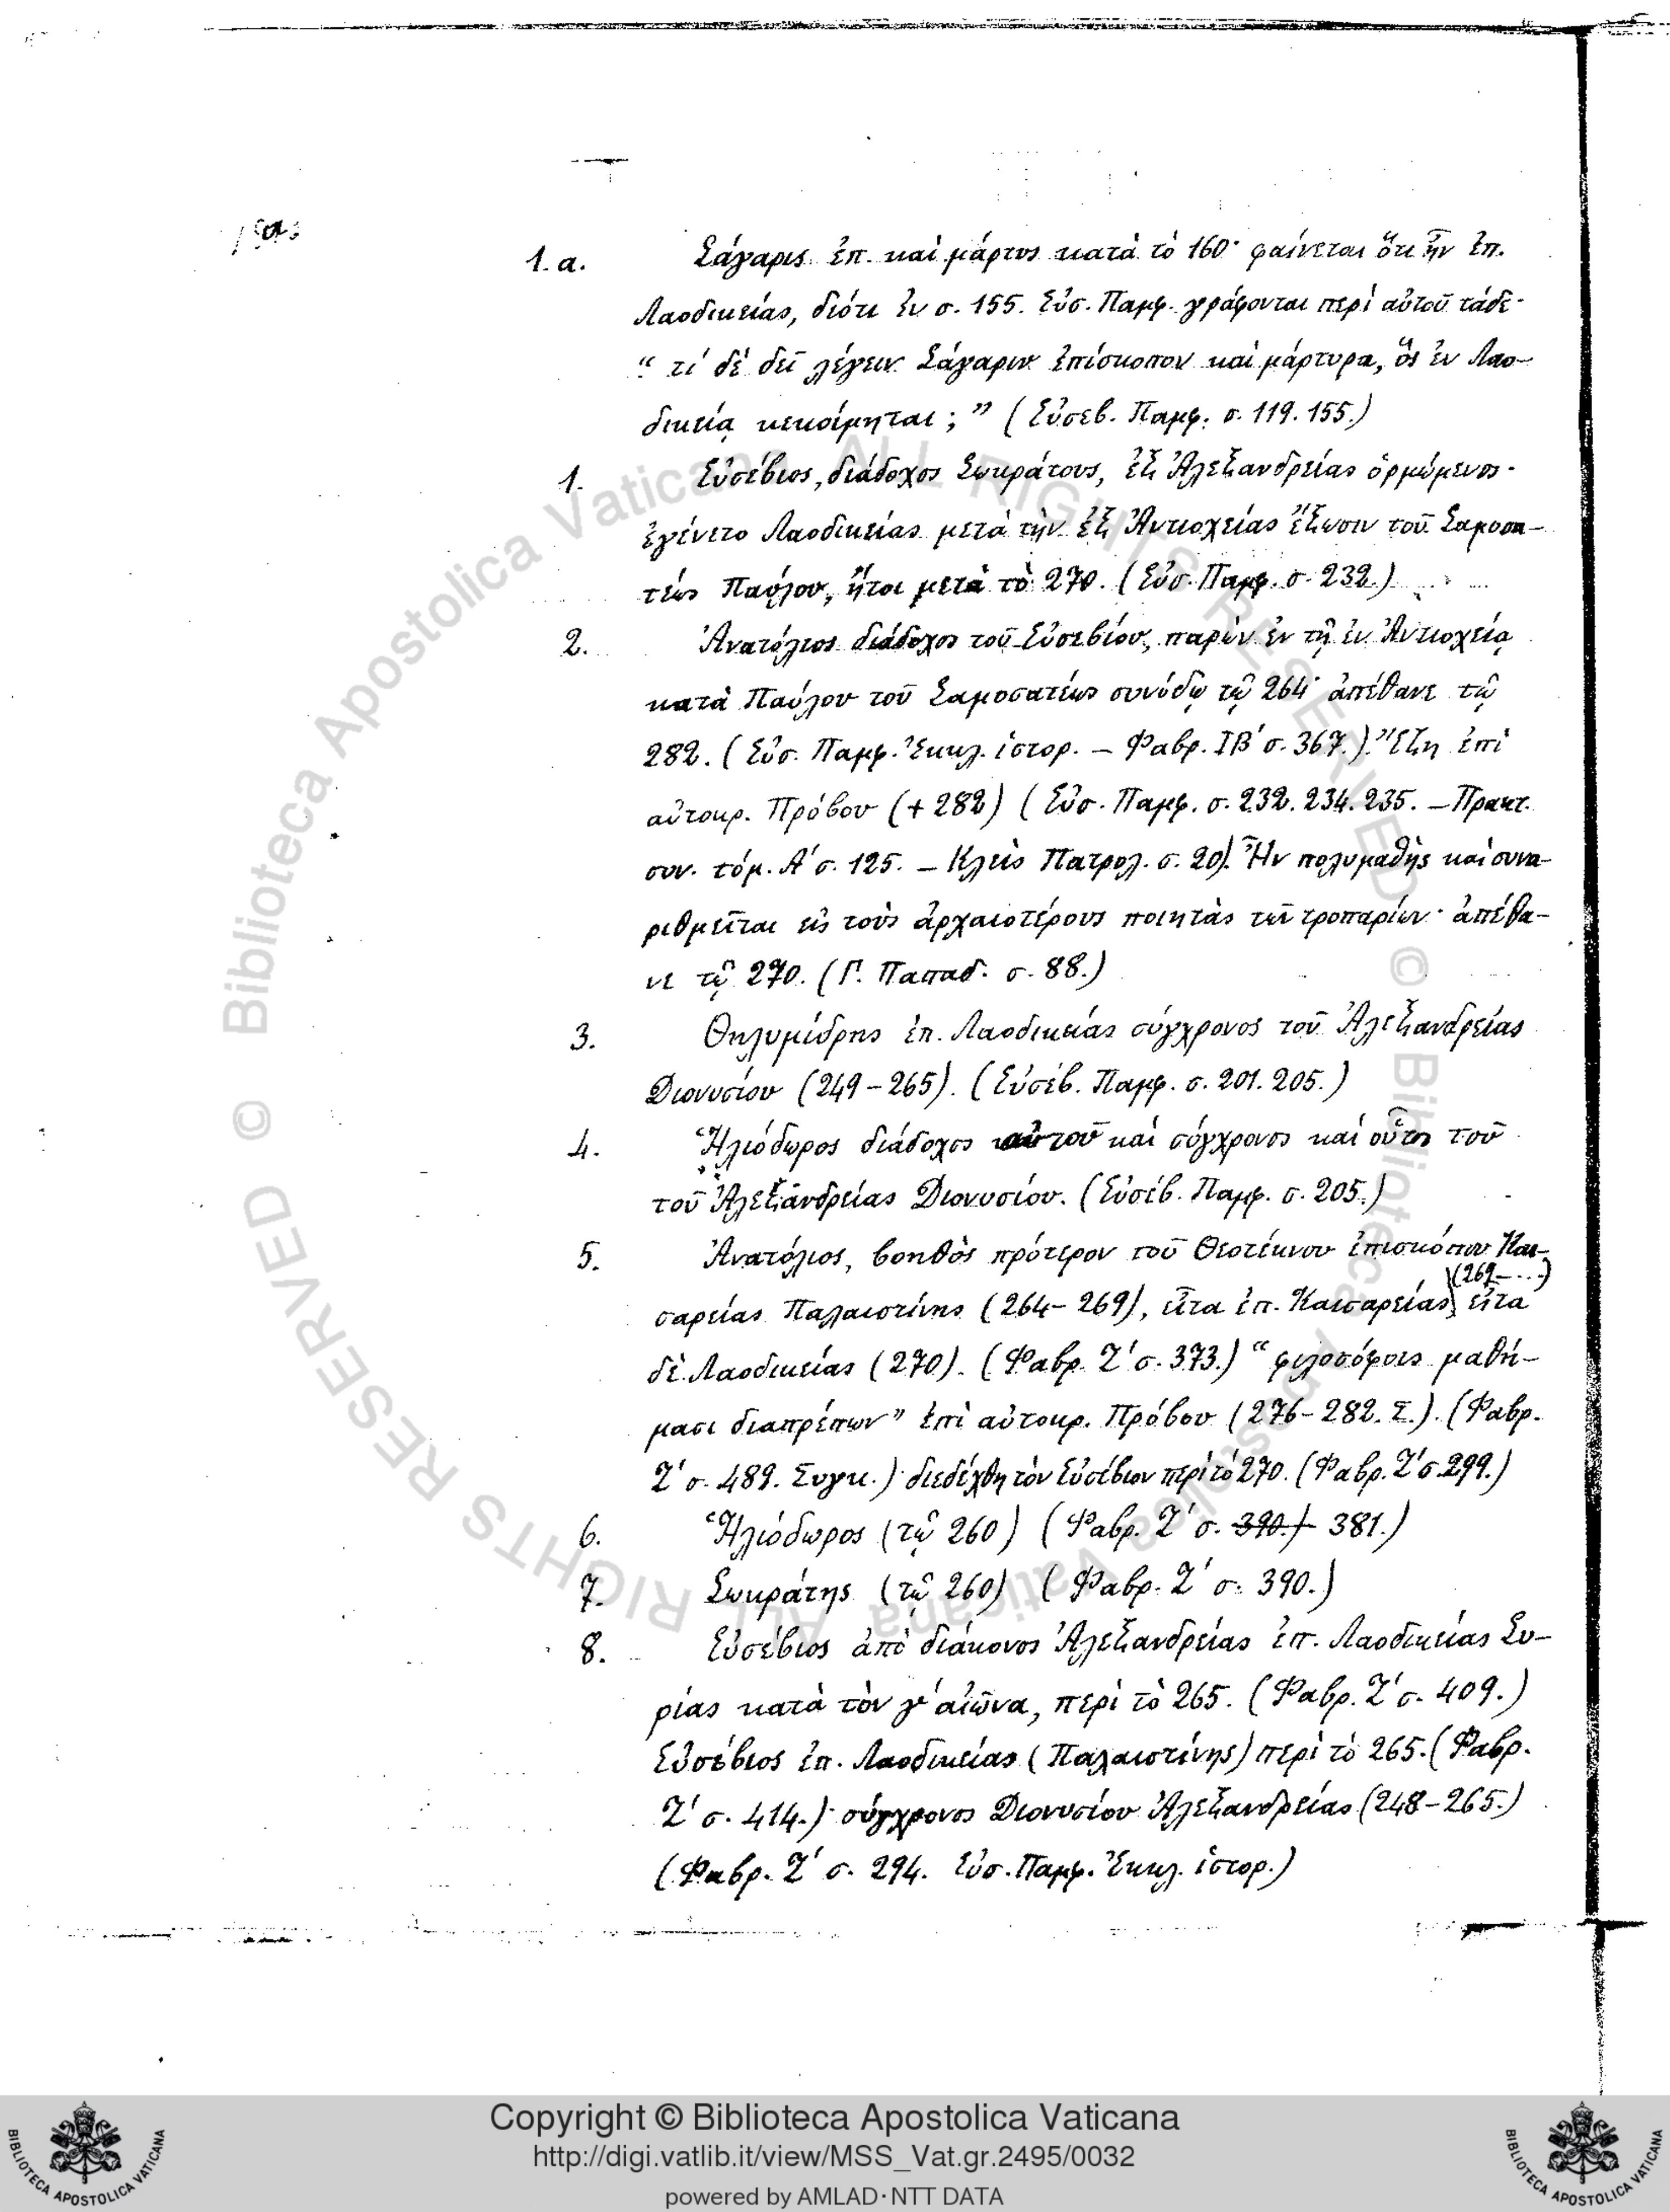 1. α. Σάγαρις ἐπ. καὶ μάρτυς κατὰ τὸ 160· φαίνεται ὅτι ἦν ἐπ.
Λαοδικείας, διότι ἐν σ. 155. Εὐσ. Παμφ. γράφονται περὶ αὐτοῦ τάδε·
“ τί δὲ δεῖ λέγειν Σάγαριν ἐπίσκοπον καὶ μάρτυρα, ὃς ἐν Λαο-
δικείᾳ κεκοίμηται ; ” ( Εὐσεβ. Παμφ. σ. 119. 155.)
1. Εὐσέβιος, διάδοχος Σωκράτους, ἐξ Ἀλεξανδρείας ὁρμώμενος·
ἐγένετο Λαοδικείας μετὰ τὴν ἐξ Ἀντιοχείας ἔξωσιν τοῦ Σαμοσα-
τέως Παύλου, ἤτοι μετὰ τὸ 270. ( Εὐσ. Παμφ. σ. 232.)
2. Ἀνατόλιος διάδοχος τοῦ Εὐσεβίου, παρὼν ἐν τῇ ἐν Ἀντιοχείᾳ
κατὰ Παύλου τοῦ Σαμοσατέως συνόδῳ τῷ 264· ἀπέθανε τῷ
282. ( Εὐσ. Παμφ. Ἐκκλ. ἱστορ. – Φαβρ. ΙΒ′ σ. 367.). Ἔζη ἐπὶ
αὐτοκρ. Πρόβου (+ 282) ( Εὐσ. Παμφ. σ. 232. 234. 235. – Πρακτ.
συν. τόμ. Α′ σ. 125. – Κλεὶς Πατρολ. σ. 20). Ἦν πολυμαθὴς καὶ συνα-
ριθμεῖται εἰς τοὺς ἀρχαιοτέρους ποιητὰς τῶν τροπαρίων· ἀπέθα-
νε τῷ 270. ( Γ. Παπαδ. σ. 88.)
3. Θηλυμίδρης ἐπ. Λαοδικείας σύγχρονος τοῦ Ἀλεξανδρείας
Διονυσίου (249 – 265). ( Εὐσέβ. Παμφ. σ. 201. 205.)
4. Ἡλιόδωρος διάδοχος αὐτοῦ καὶ σύγχρονος καὶ οὗτος τοῦ
τοῦ Ἀλεξανδρείας Διονυσίου. ( Εὐσέβ. Παμφ. σ. 205.)
5. Ἀνατόλιος, βοηθὸς πρότερον τοῦ Θεοτέκνου ἐπισκόπου Και-
(269 – ...)
σαρείας Παλαιστίνης (264 – 269), εἶτα ἐπ. Καισαρείας, εἶτα
δὲ Λαοδικείας (270). ( Φαβρ. Ζ′ σ. 373.) “ φιλοσόφοις μαθή-
μασι διαπρέπων ” ἐπὶ αὐτοκρ. Πρόβου (276 – 282. Σ.). ( Φαβρ.
Ζ′ σ. 489. Συγκ.)· διεδέχθη τὸν Εὐσέβιον περὶ τὸ 270. ( Φαβρ. Ζ′ σ. 299.)
6. Ἡλιόδωρος (τῷ 260) ( Φαβρ. Ζ′ σ. 390.) 381.)
7. Σωκράτης (τῷ 260) ( Φαβρ. Ζ′ σ. 390.)
8. Εὐσέβιος ἀπὸ διάκονος Ἀλεξανδρείας ἐπ. Λαοδικείας Συ-
ρίας κατὰ τὸν γ′ αἰῶνα, περὶ τὸ 265. ( Φαβρ. Ζ′ σ. 409.)
Εὐσέβιος ἐπ. Λαοδικείας ( Παλαιστίνης) περὶ τὸ 265. ( Φαβρ.
Ζ′ σ. 414.)· σύγχρονος Διονυσίου Ἀλεξανδρείας (248 – 265.)
( Φαβρ. Ζ′ σ. 294. Εὐσ. Παμφ. Ἐκκλ. ἱστορ.)
© Biblioteca Apostolica Vaticana ALL RIGHTS RESERVED © Biblioteca Apostolica Vaticana ALL RIGHTS RESERVED
Copyright © Biblioteca Apostolica Vaticana
http://digi.vatlib.it/view/MSS_Vat.gr.2495/0032
powered by AMLAD · NTT DATA
BIBLIOTECA APOSTOLICA VATICANA
BIBLIOTECA APOSTOLICA VATICANA